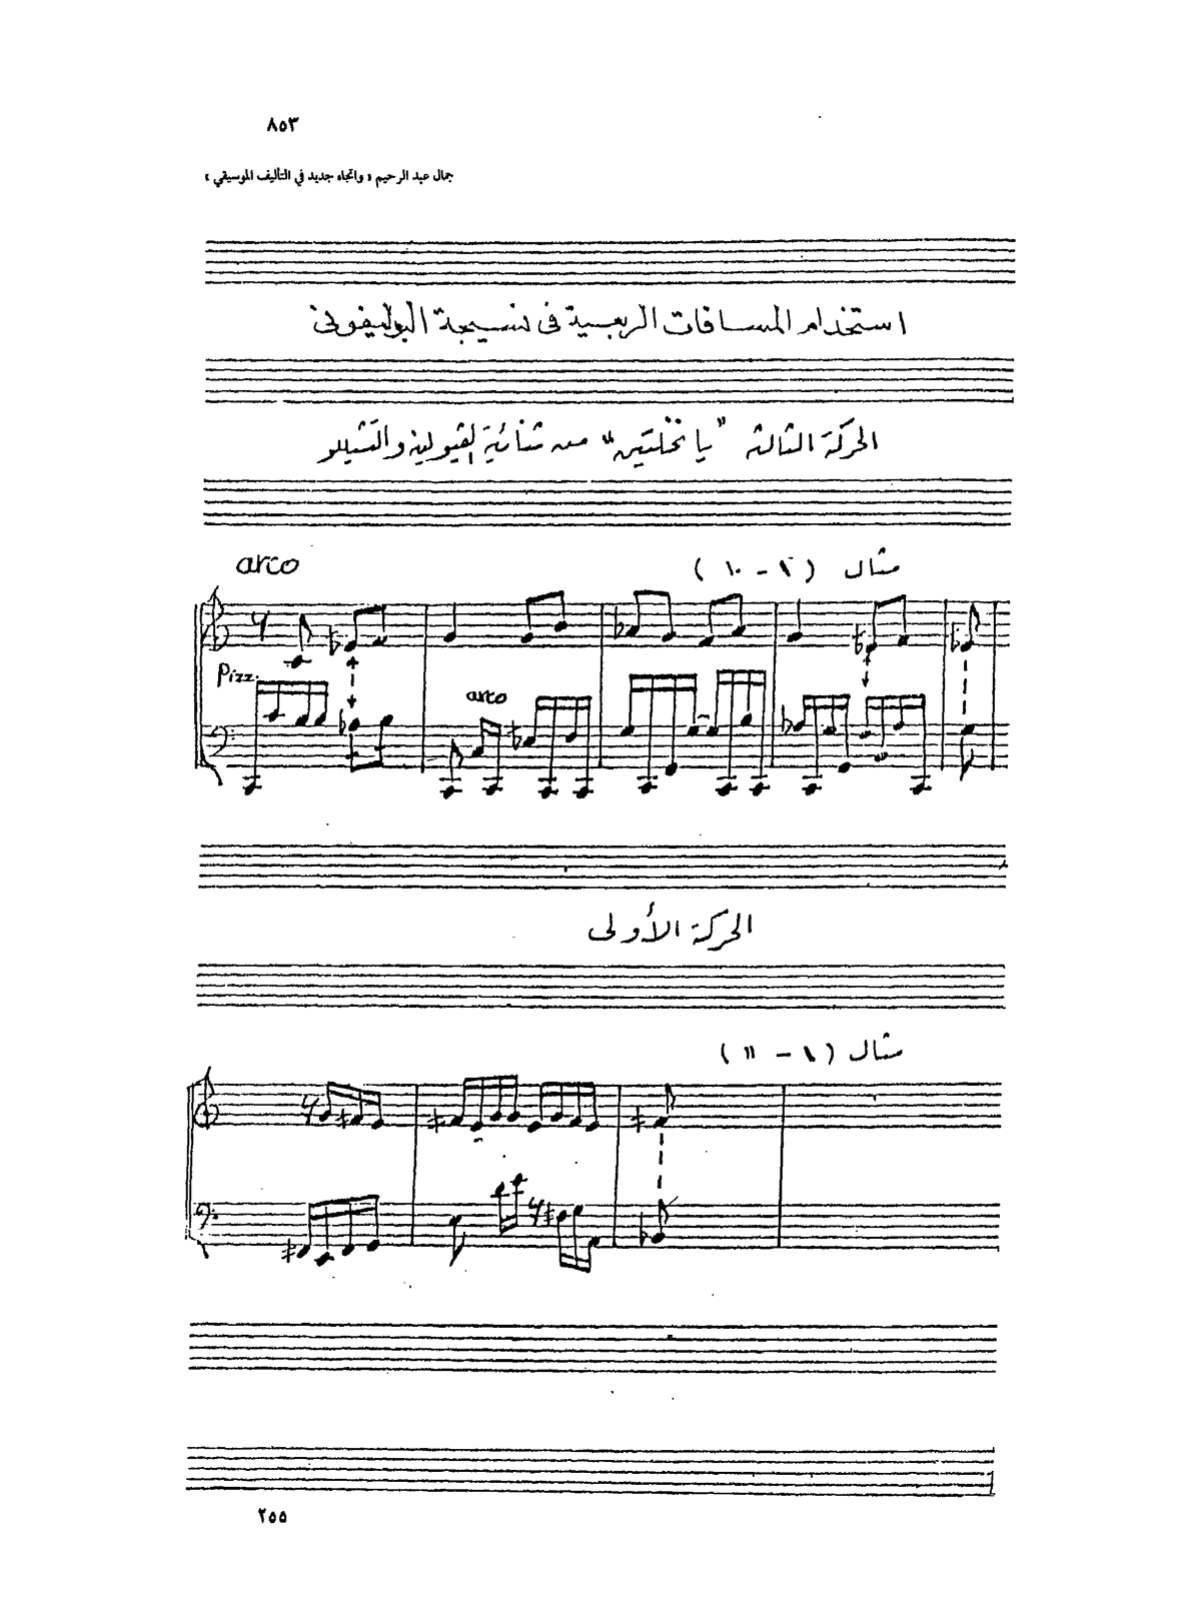 ٨٥٣
جمال عبد الرحيم « واتجاه جديد في التأليف الموسيقي »
استخدام المسافات الربعية فى نسيجة البوليفونى
الحركة الثالثة "يا نخلتين" من ثنائية الڤيولينه والتشيللو
مثال (٩ - ١٠)
arco
Pizz.
arco
الحركة الأولى
مثال (٩ - ١١)
٢٥٥